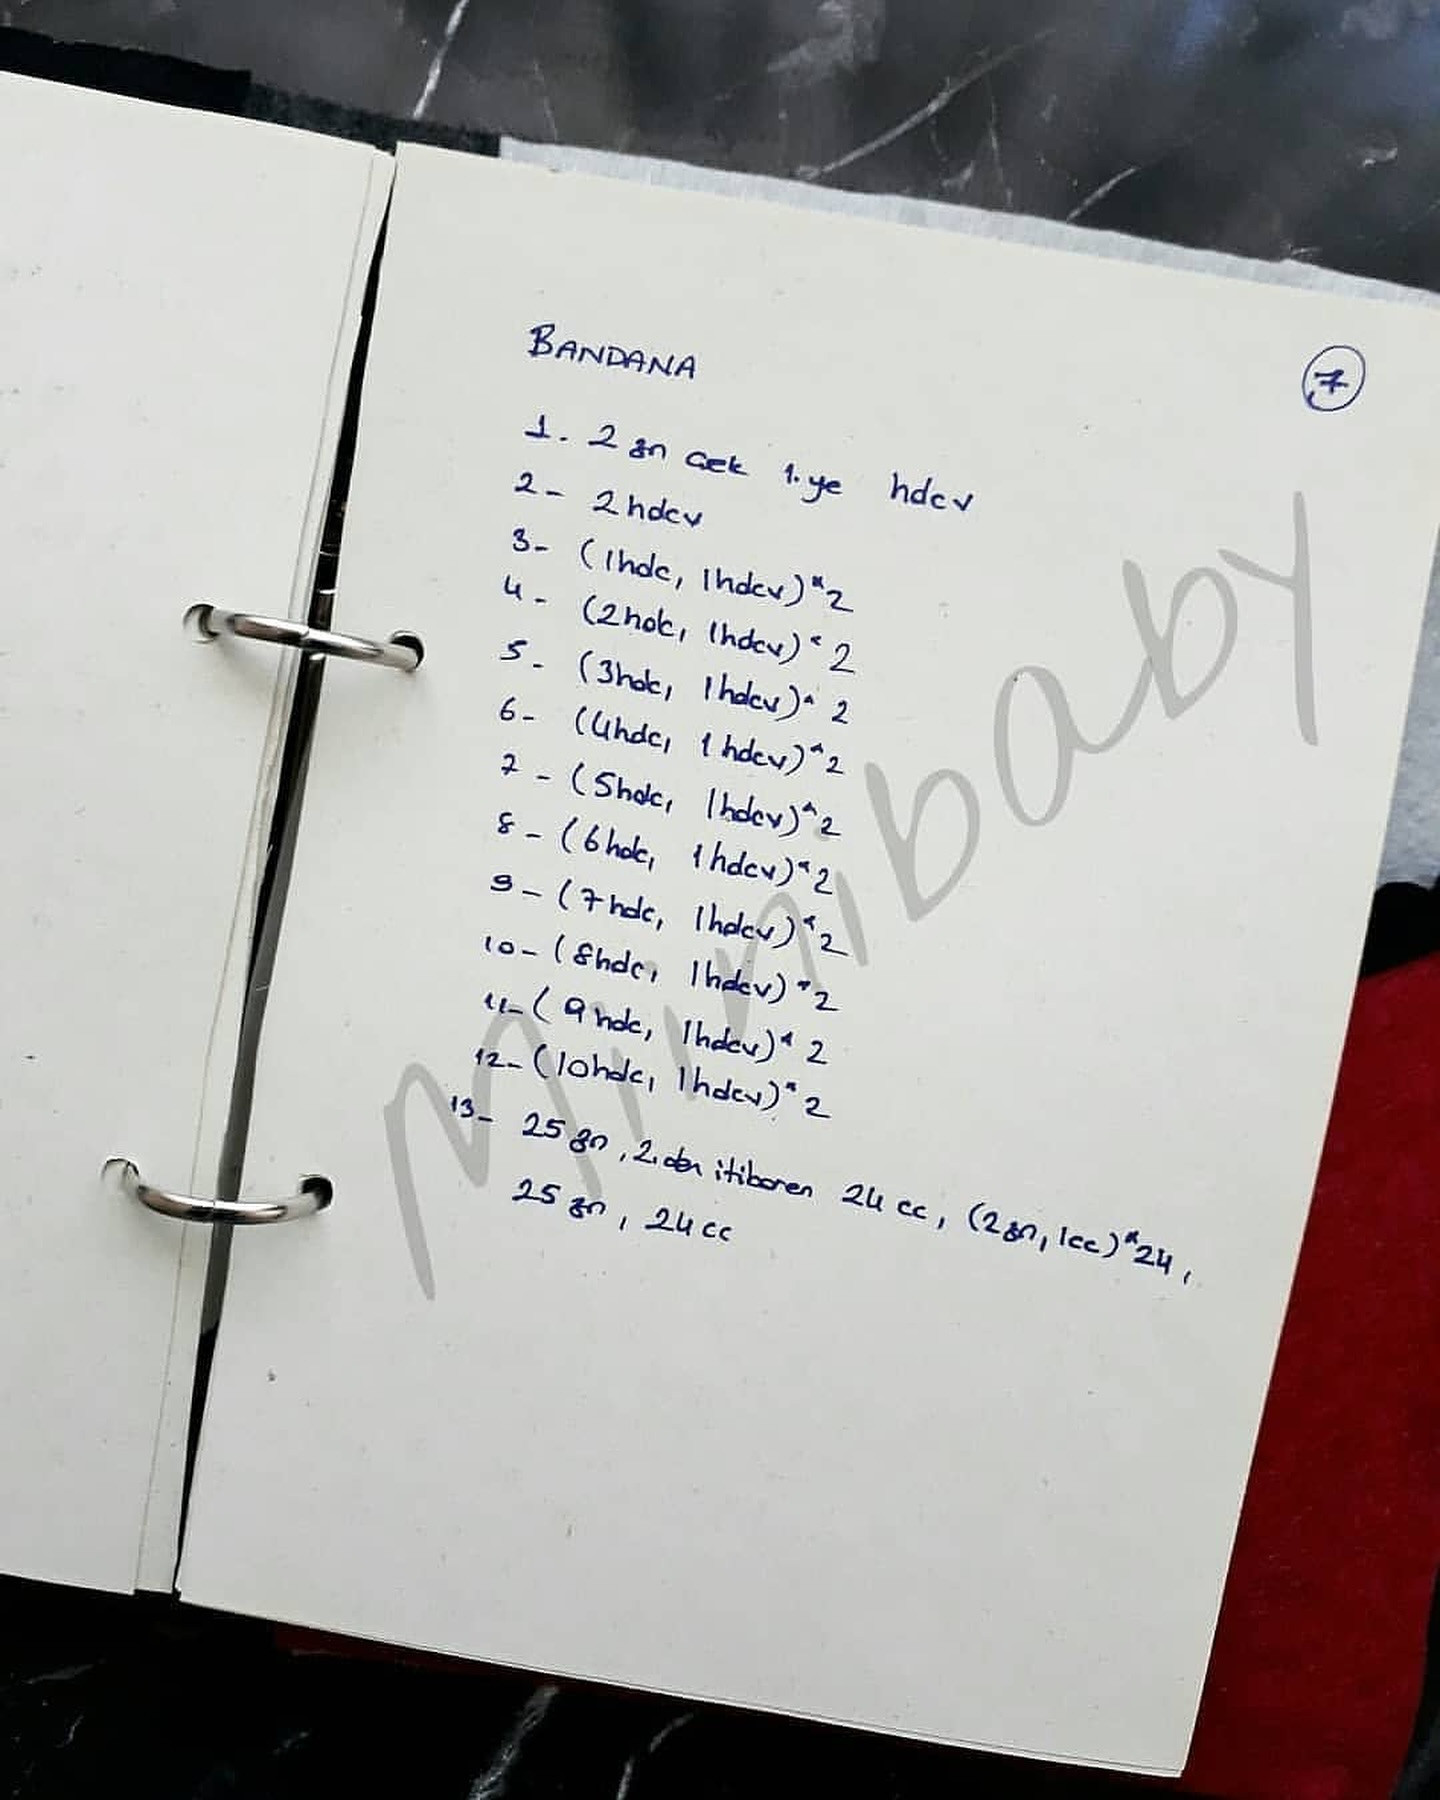 BANDANA
7
1. 2 zn çek 1.ye hdcv
2- 2hdcv
3- (1hdc, 1hdcv)*2
4- (2hdc, 1hdcv)*2
5- (3hdc, 1hdcv)*2
6- (4hdc, 1hdcv)*2
7- (5hdc, 1hdcv)*2
8- (6hdc, 1hdcv)*2
9- (7hdc, 1hdcv)*2
10- (8hdc, 1hdcv)*2
11- (9hdc, 1hdcv)*2
12- (10hdc, 1hdcv)*2
13- 25 zn, 2.den itibaren 24 cc, (2zn, 1cc)*24,
25 zn, 24 cc
Miinibaby